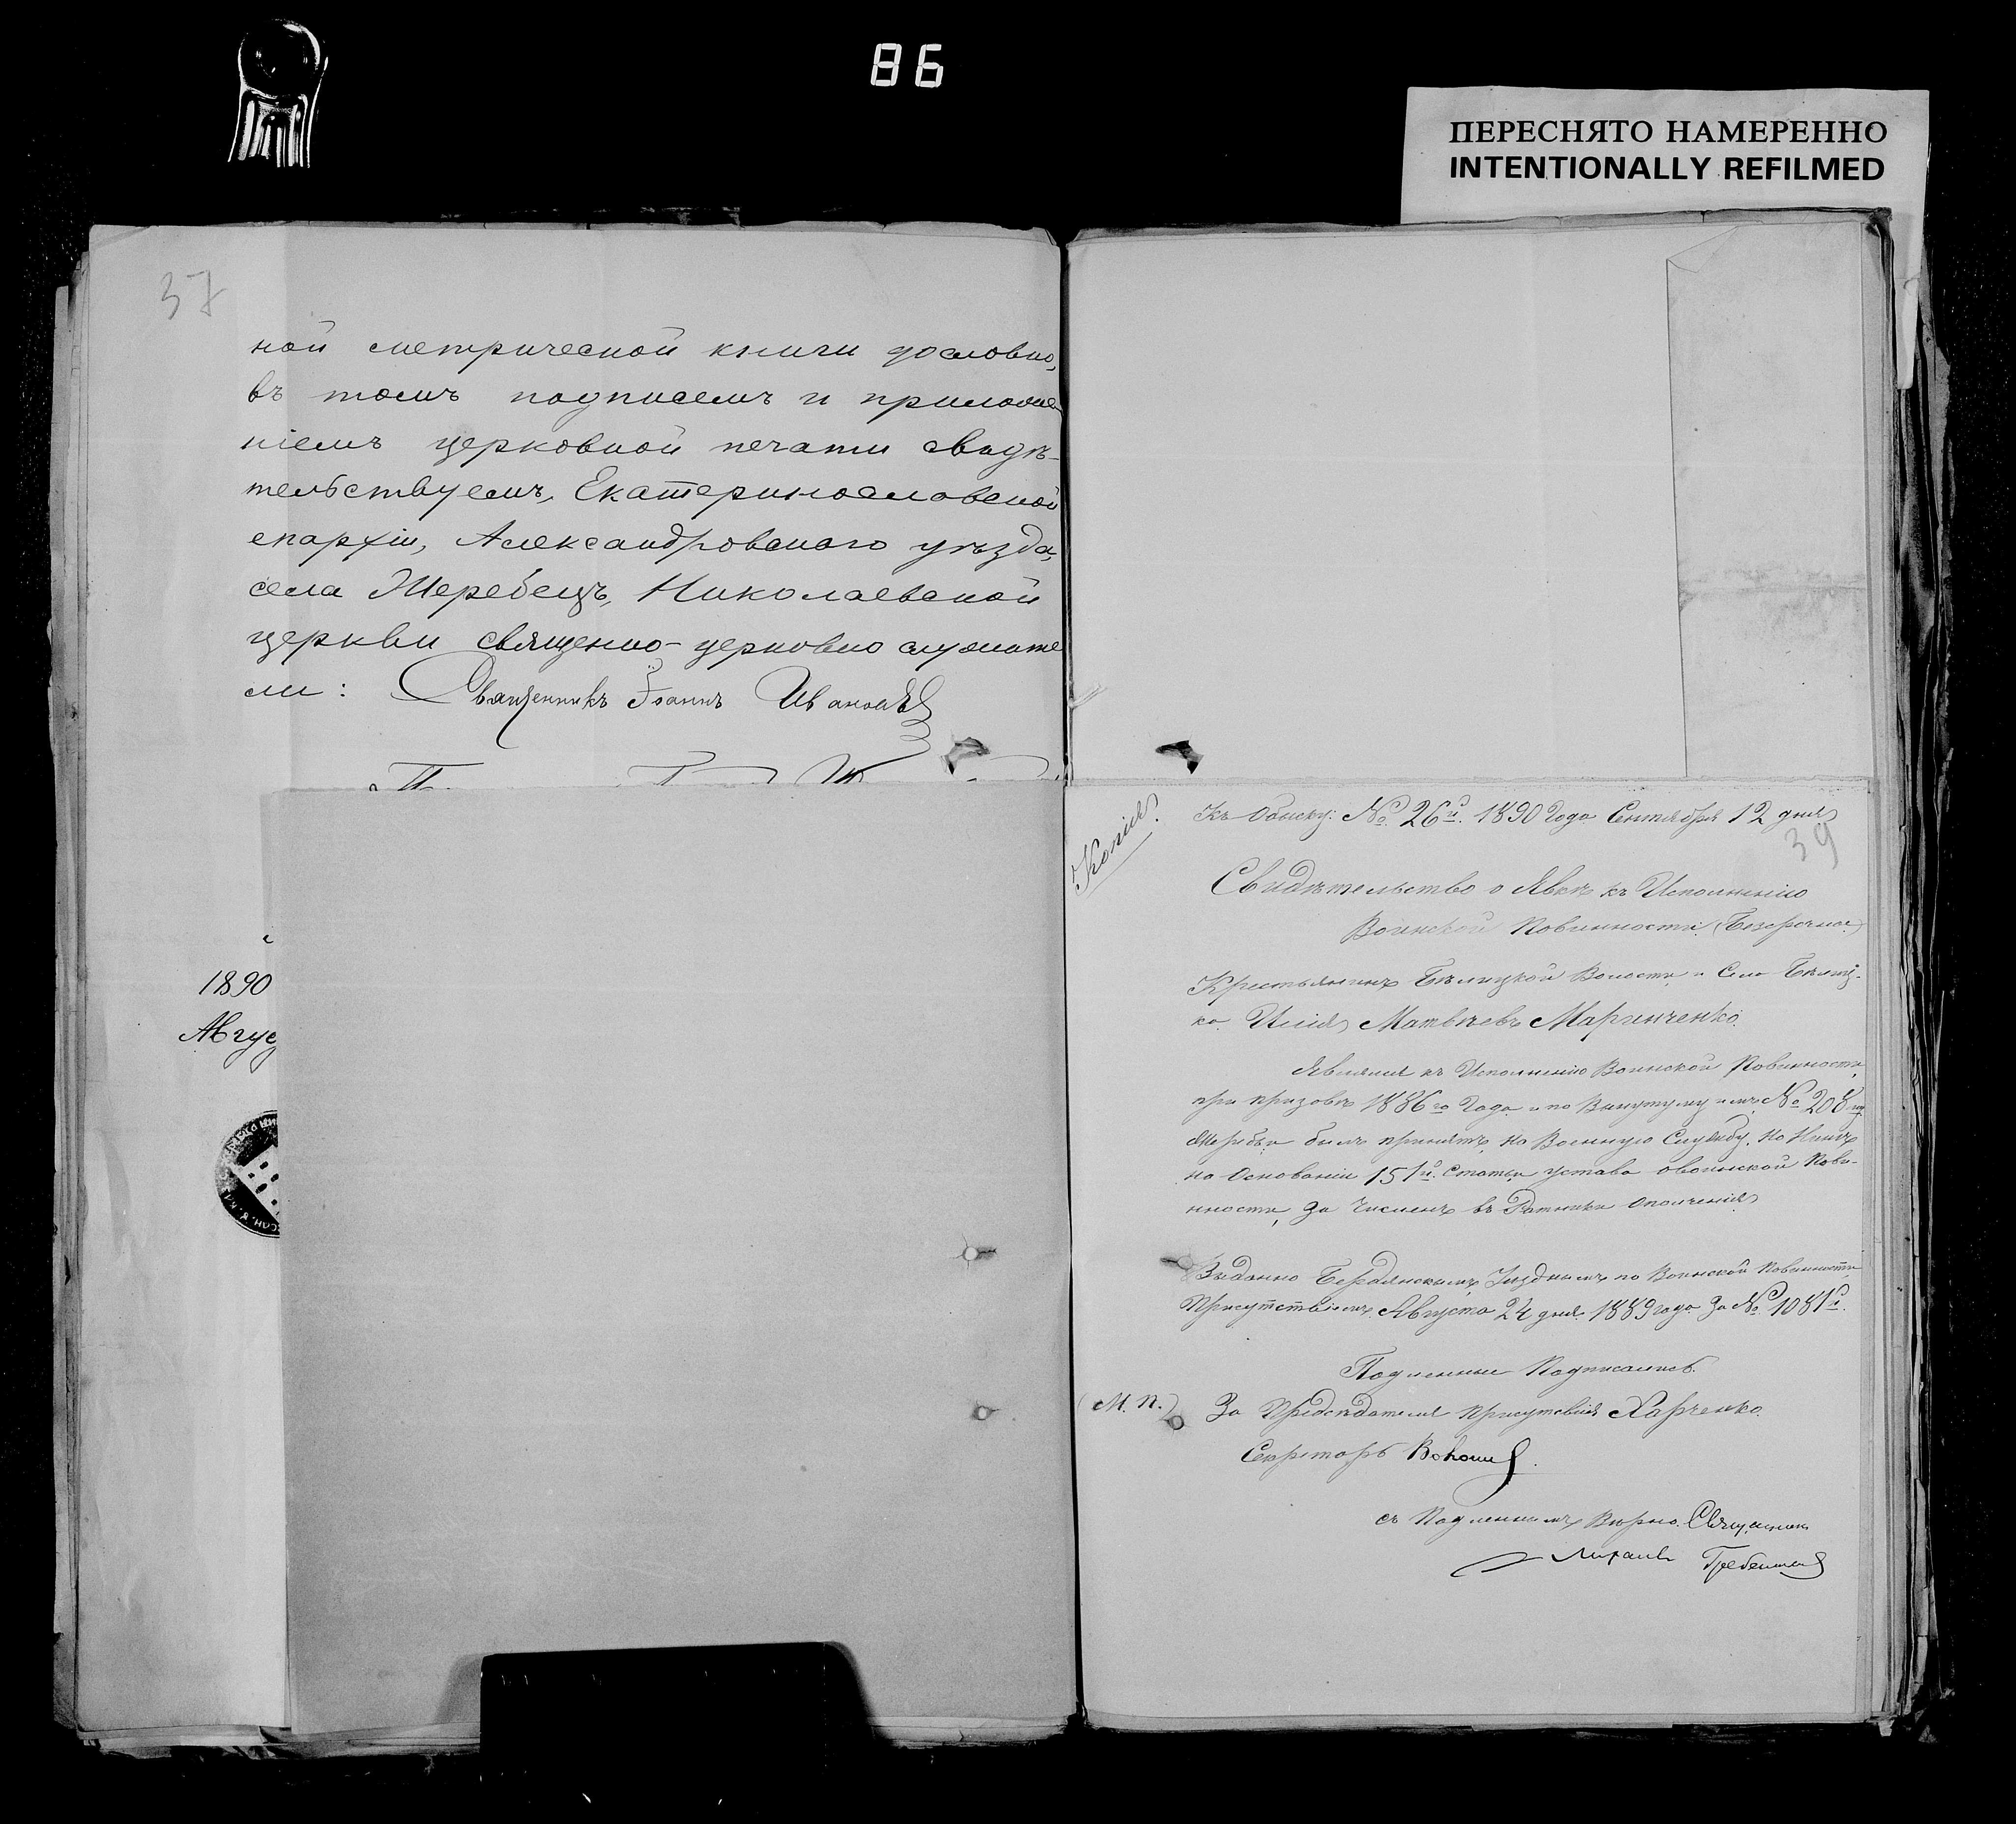 86
ПЕРЕСНЯТО НАМЕРЕННО
INTENTIONALLY REFILMED
37
ной метрической книги дословно,
въ томъ подписемъ и приложе
ніемъ церковной печати свидѣ-
тельствуемъ, Екатеринославской
епархіи, Александровскаго уѣзда,
села Жеребецъ, Николаевской
церкви священно-церковно служите
ли: Священникъ Іоаннъ Ивановъ
1890
Авгус
Копія.
Къ Обыску: № 26й. 1890 Года Сентября 12 дня
39
Свидѣтельство о Явкѣ къ Исполнению
Воинской Повинности (Безсрочное)
Крестьянинъ Бѣлицкой Волости и Села Бѣлиц-
ко. Илия Матвѣевъ Маринченко.
Являлся къ Исполнению Воинской Повинности,
при призовѣ 1886го Года и по Вынутому имъ № 208му
Жребья былъ принятъ на Военную Службу. Но Нынѣ
на Основании 151й. Статьи устава о воинской Пови-
нности, За Численъ въ Ратники Ополчения
Выданно Бердянскимъ Уѣзднымъ по Воинской Повинности
Присутствіемъ Августа 24 дня 1889 года За № 1081й.
Подленные Подписались.
(М. П.) За Предсѣдателя Присутсвия Харченко.
Секретарь
съ Подленнымъ Вѣрно. Священник
Михаилъ